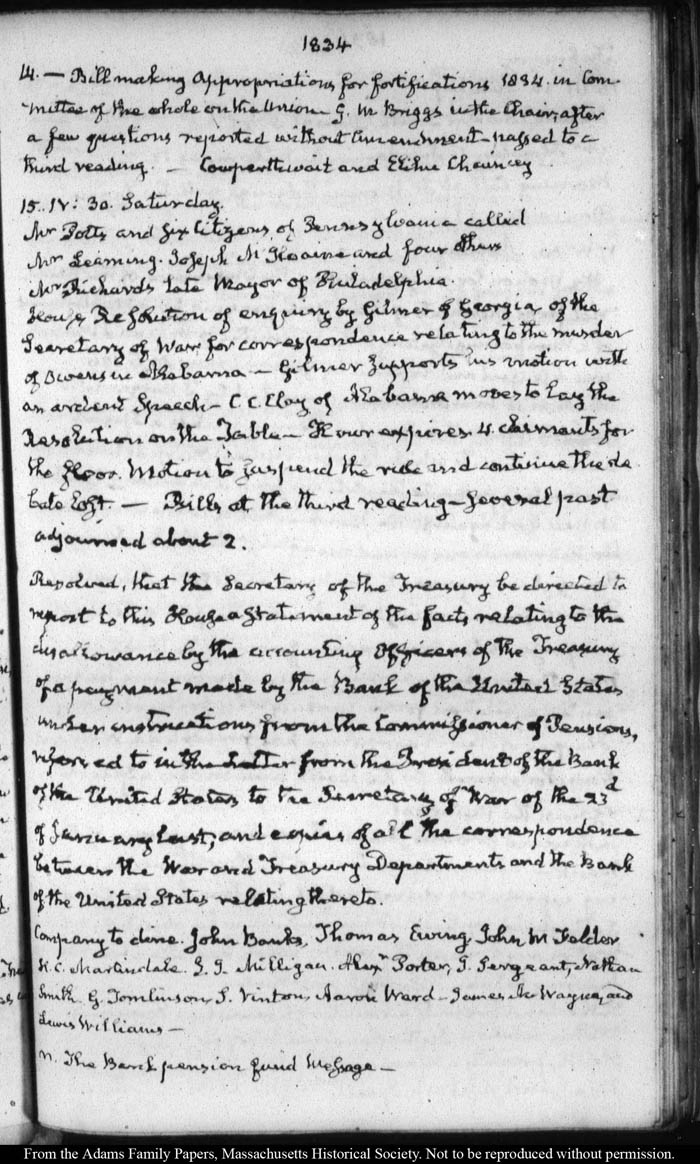 1834
14. — Bill making Appropriations for fortifications 1834. in Com-
mittee of the whole on the Union G. N Briggs in the Chair, after
a few questions reported without Amendment - passed to a
third reading. — Cowperthwait and Elihu Chauncey
15. IV: 30. Saturday.
Mr Potts and six Citizens of Pennsylvania called
Mr Leaming. Joseph M and four others
Mr Richards late Mayor of Philadelphia
House Resolution of enquiry by Gilmer of Georgia, of the
Secretary of War, for correspondence relating to the murder
of Owens in Alabama — Gilmer supports his motion with
an ardent Speech — C. C. Clay of Alabama moves to lay the
Resolution on the Table — Hour expires. 4 claimants for
the floor. Motion to suspend the rule and continue the de
bate lost. — Bills at the third reading — several past
adjourned about 2.
Resolved, that the Secretary of the Treasury be directed to
report to this House a Statement of the facts relating to the
disallowance by the accounting Officers of the Treasury
of a payment made by the Bank of the United States
under instructions from the Commissioner of Pensions,
referred to in the Letter from the President of the Bank
of the United States to the Secretary of War of the 23d
of January last, and copies of all the correspondence
between the War and Treasury Departments and the Bank
of the United States relating thereto.
Company to dine. John Banks, Thomas Ewing, John M Felder
H. C. Martindale. J. J. Milligan. Alexr Porter, J. Sergeant, Nathan
Smith G. Tomlinson, S. Vinton, Aaron Ward — James M. Wayne, and
Lewis Williams —
N. The Bank pension fund Message —
From the Adams Family Papers, Massachusetts Historical Society. Not to be reproduced without permission.